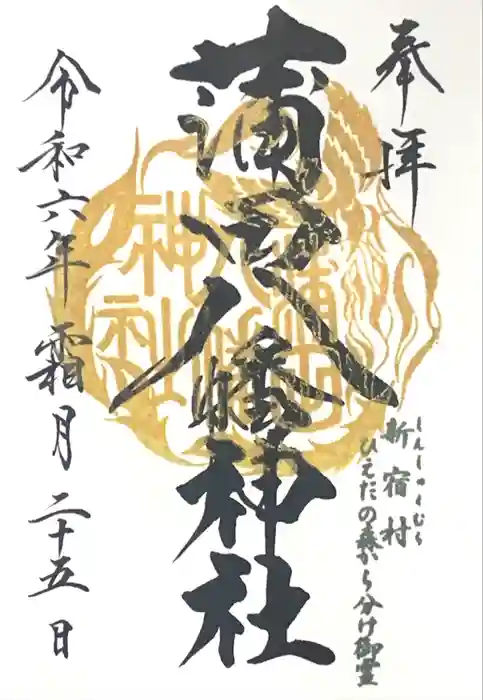 奉拝
蒲田八幡神社
新宿村
しんしゅくむら
ひえだの森から分け御霊
令和六年 霜月 二十五日
蒲田八幡神社